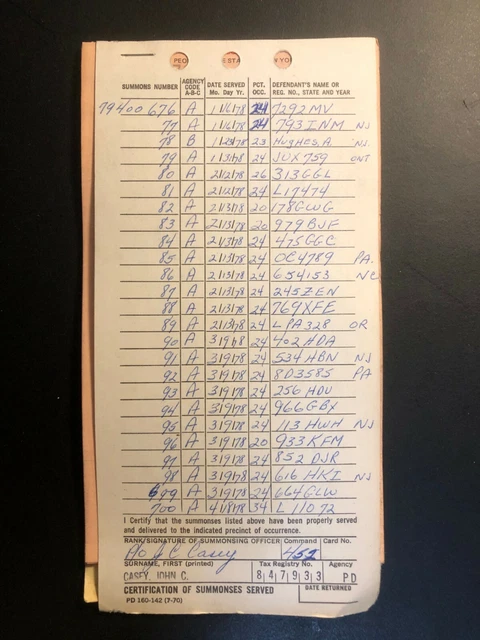 PEO STA YO
SUMMONS NUMBER AGENCY CODE A-B-C DATE SERVED Mo. Day Yr. PCT. OCC. DEFENDANT'S NAME OR REG. NO., STATE AND YEAR
79400 676 A 1/16/78 24 7292MV
77 A 1/16/78 24 793INM NJ
78 B 1/23/78 23 Hughes, A.
79 A 1/31/78 24 JUX759 ONT
80 A 2/12/78 26 313GGL
81 A 2/12/78 24 L17474
82 A 2/13/78 20 178GWG
83 A 2/13/78 20 979BJF
84 A 2/13/78 24 475GGC
85 A 2/13/78 24 OC4789 PA.
86 A 2/13/78 24 654153 NC
87 A 2/13/78 24 245ZEN
88 A 2/13/78 24 769XFE
89 A 2/13/78 24 LPA328 OR
90 A 3/9/78 24 402HDA
91 A 3/9/78 24 534HBN NJ
92 A 3/9/78 24 8D3585 PA
93 A 3/9/78 24 256HDU
94 A 3/9/78 24 966GBX
95 A 3/9/78 24 113HWH NJ
96 A 3/9/78 20 933KFM
97 A 3/9/78 24 852DJR
98 A 3/9/78 24 616HKI NJ
699 A 3/9/78 24 664GLW
700 A 4/18/78 34 L11072
I Certify that the summonses listed above have been properly served
and delivered to the indicated precinct of occurrence.
RANK/SIGNATURE OF SUMMONSING OFFICER Command Card No.
P/O J C Casey 452
SURNAME, FIRST (printed) Tax Registry No. Agency
CASEY, JOHN C. 847933 PD
CERTIFICATION OF SUMMONSES SERVED DATE RETURNED
PD 160-142 (7-70)